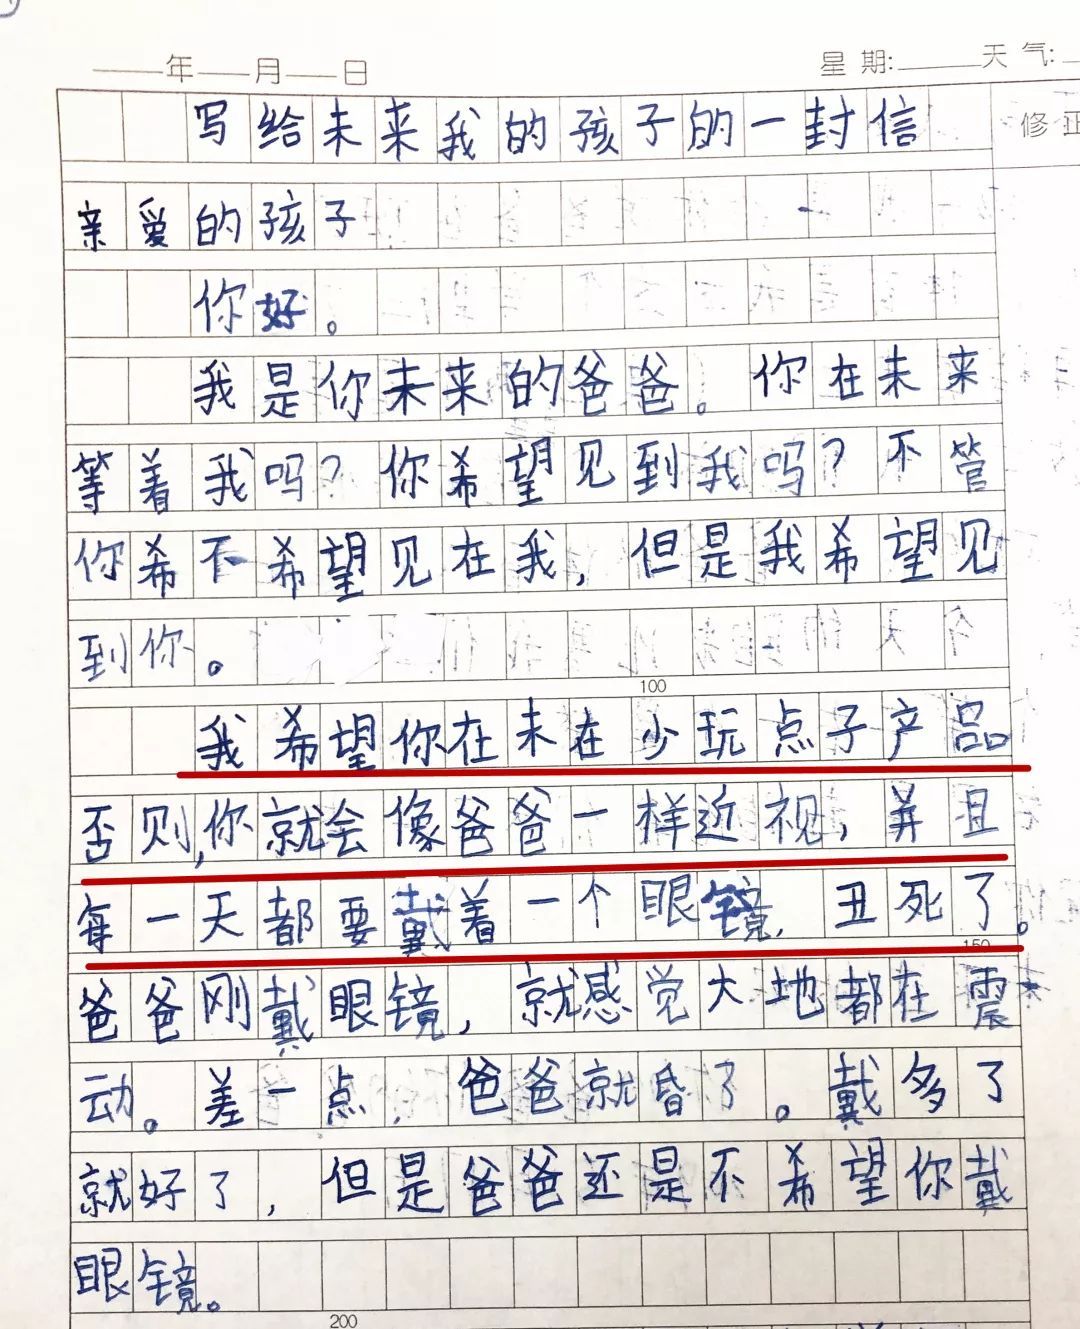 年 月 日 星期: 天气:
写给未来我的孩子的一封信
修正
亲爱的孩子
你好。
我是你未来的爸爸。你在未来
等着我吗?你希望见到我吗?不管
你希不希望见在我,但是我希望见
到你。
100
我希望你在未在少玩点子产品
否则,你就会像爸爸一样近视,并且
每一天都要戴着一个眼镜,丑死了。
150
爸爸刚戴眼镜,就感觉大地都在震
动。差一点,爸爸就昏了。戴多了
就好了,但是爸爸还是不希望你戴
眼镜。
200